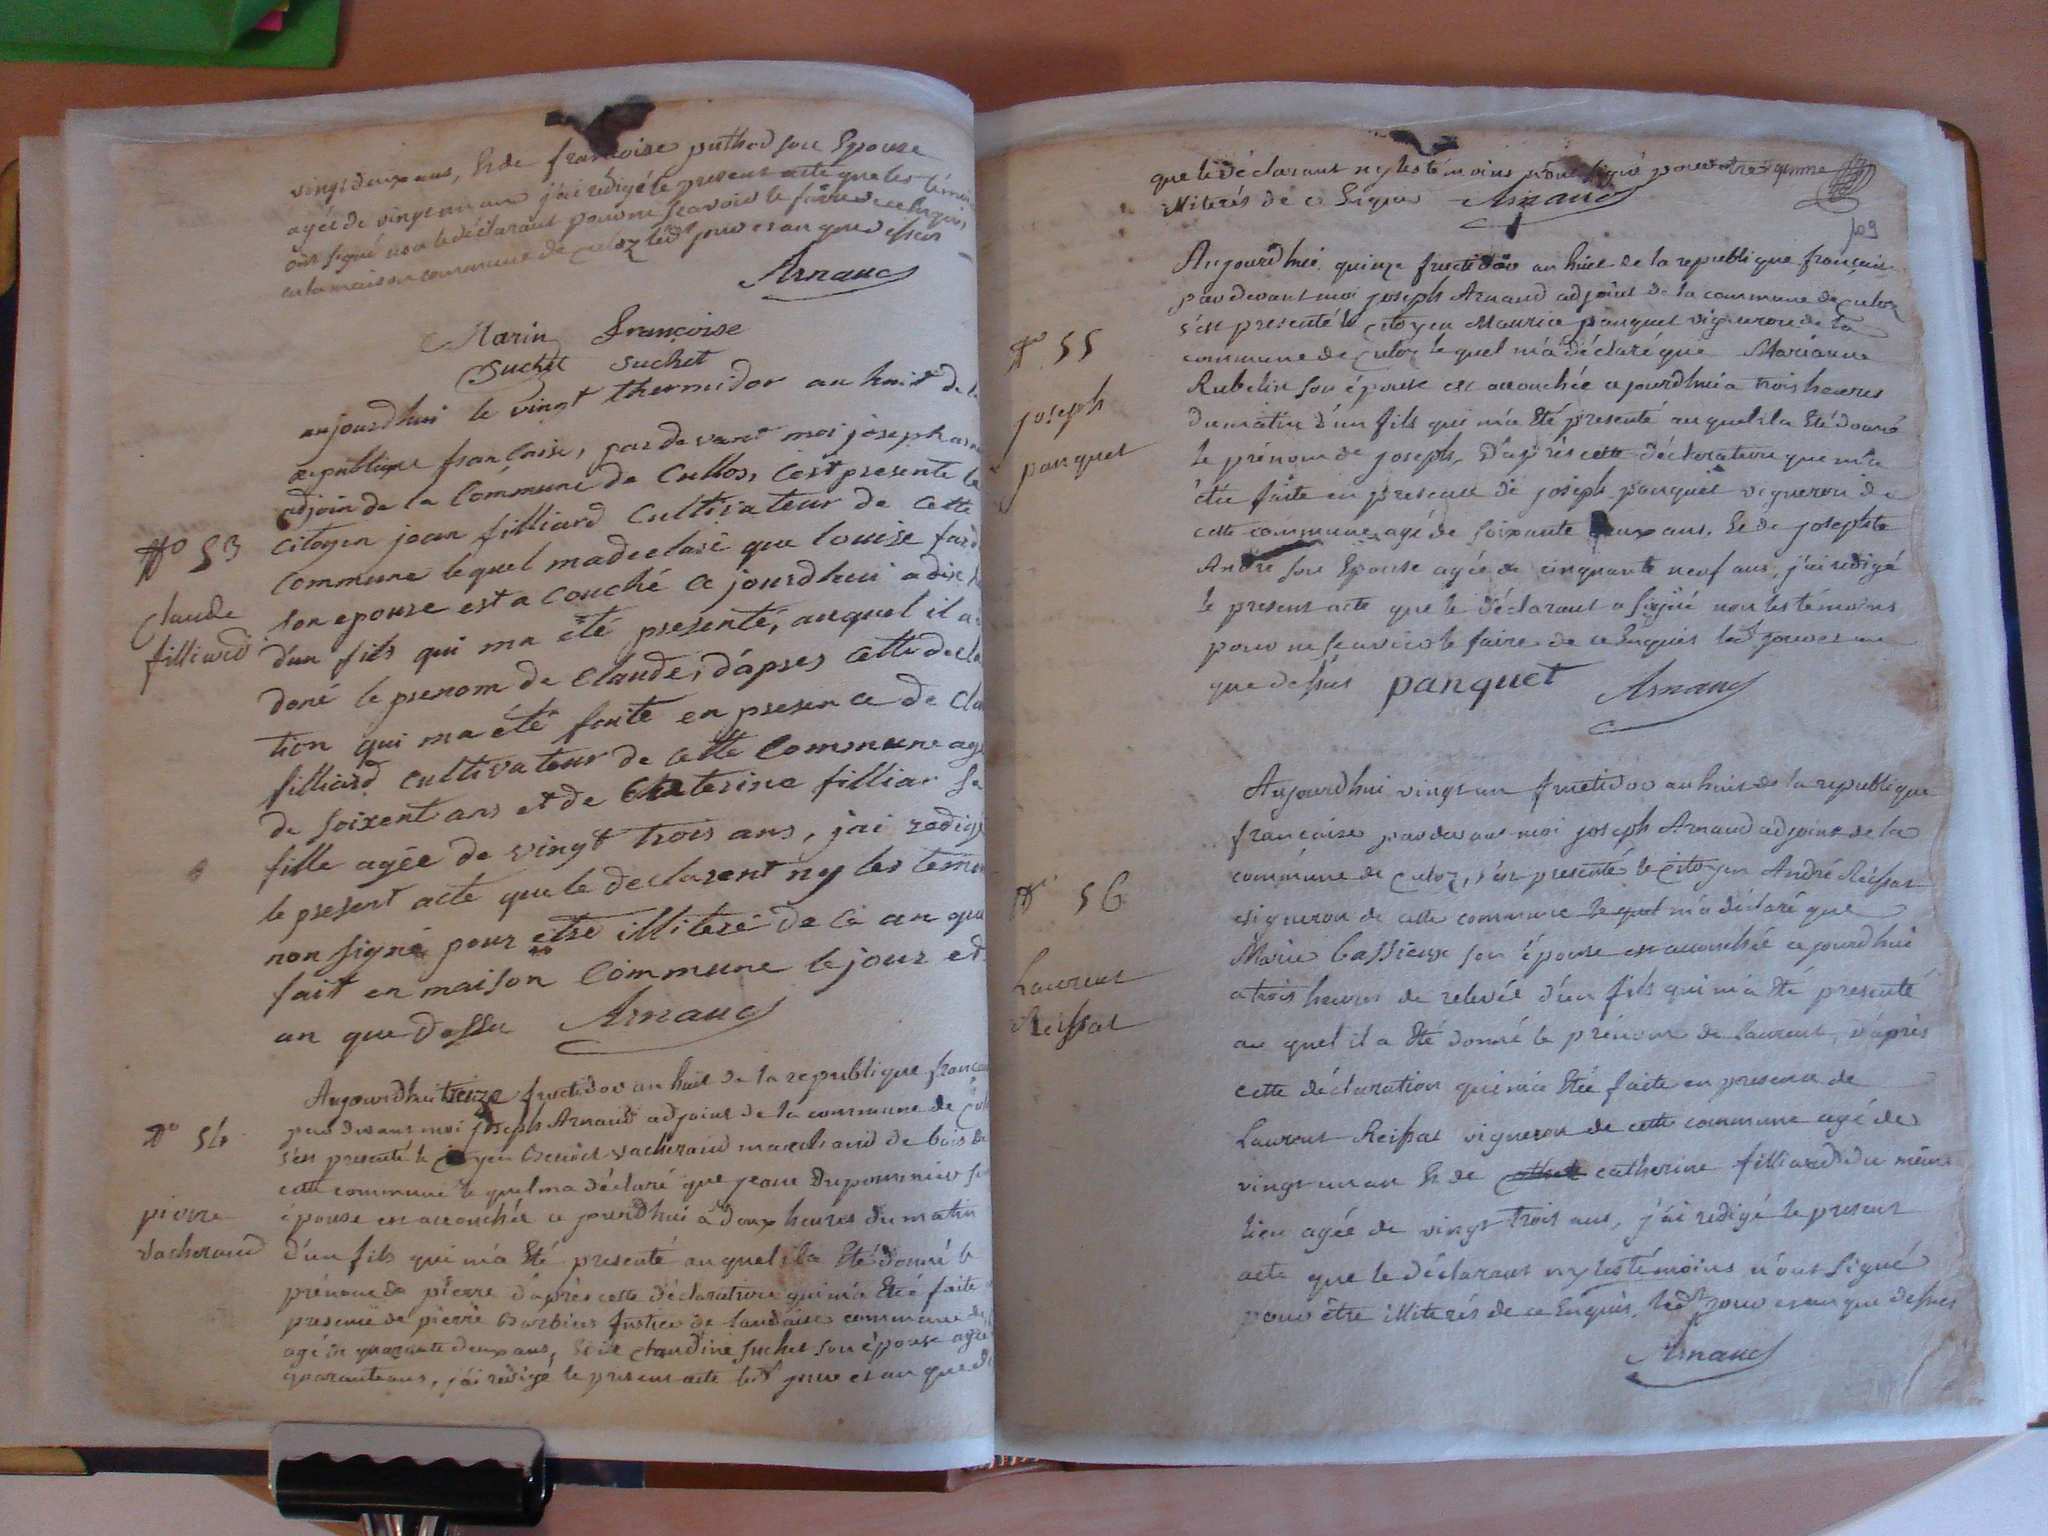 vingt deux ans, Et de françoise puthod son Epouse
agée de vingt un ans j'ai rédigé le present acte que les témoins
ont signé non le déclarant pour ne scavoir le faire de ce Enquis
en la maison commune de Culoz led. jour et an que dessus
Arnaud
Marin Françoise
Suchet Suchet
aujourdhui le vingt thermidor an huit de la
republique francaise, par devant moi joseph
adjoin de la Commune de Cullos, c'est presenté le
N° 53
citoyen jean filliard Cultivateur de cette
commune lequel ma declaré que louise
Claude
filliard
son epouse est a couché ce jourdhui a dix
d'un fils qui ma été presenté, auquel il a
doné le prenom de Claude, d'apres cette decla
tion qui ma été faite en presence de Cla
filliard cultivateur de cette Commune agé
de soixent ans et de Caterine filliar sa
fille agée de vingt trois ans, j'ai redigé
le present acte que le declarent ny les temoi
non signé pour etre illiteré de cà an qui
fait en maison Commune le jour et
an que dessu Arnaud
Aujourdhui treize fructidor an huit de la republique françai
N° 54
par devant moi joseph Arnaud adjoint de la commune de Culoz
s'est presenté le citoyen Benoit vacherand marchand de bois de
cette commune le quel ma déclaré que jeane Dupommier son
pierre
vacherand
épouse est accouchée ce jourdhui à deux heures du matin
d'un fils qui m'a Eté presenté au quel il a Eté donné le
prénom de pierre d'après cette déclaration qui m'a Eté faite
presence de pierre Barbier commune de
agé de quarante deux ans, Et de Claudine suchet son épouse agée
quarante ans, j'ai redigé le present acte led. jour et an que
que le déclarant ny les témoins n'ont signé pour être
illiterés de ce Enquis Arnaud
109
Aujourdhui quinze fructidor an huit de la republique française
par devant moi joseph Arnaud adjoint de la commune de Culoz
N° 55
s'est presenté le Citoyen Maurice panquet vigneron de la
commune de Culoz le quel m'a déclaré que Marianne
joseph
panquet
Rubelin son épouse est accouchée ce jourdhui à trois heures
du matin d'un fils qui m'a Eté présenté au quel il a Eté donné
le prénom de joseph, D'après cette déclaration qui m'a
étée faite en presence de joseph panquet vigneron de
cette commune agé de soixante deux ans, Et de josephte
André son Epouse agée de cinquante neuf ans, j'ai redigé
le present acte que le déclarant a signé non les témoins
pour ne scavoir le faire de ce Enquis led. jour et an
que dessus panquet Arnaud
Aujourdhui vingt un fructidor an huit de la republique
française par devant moi joseph Arnaud adjoint de la
commune de Culoz, s'est presenté le Citoyen André Reissat
N° 56
vigneron de cette commune le quel m'a déclaré que
Marie Cassieux son épouse est accouchée ce jourdhui
Laurent
Reissat
a trois heures de relevée d'un fils qui m'a Eté presenté
au quel il a Eté donné le prénom de Laurent, d'après
cette déclaration qui m'a Etée faite en presence de
Laurent Reissat vigneron de cette commune agé de
vingt un an Et de catherine filliard du même
lieu agée de vingt trois ans, j'ai redigé le present
acte que le déclarant ny les témoins n'ont signé
pour être illiterés de ce Enquis, led. jour et an que dessus
Arnaud